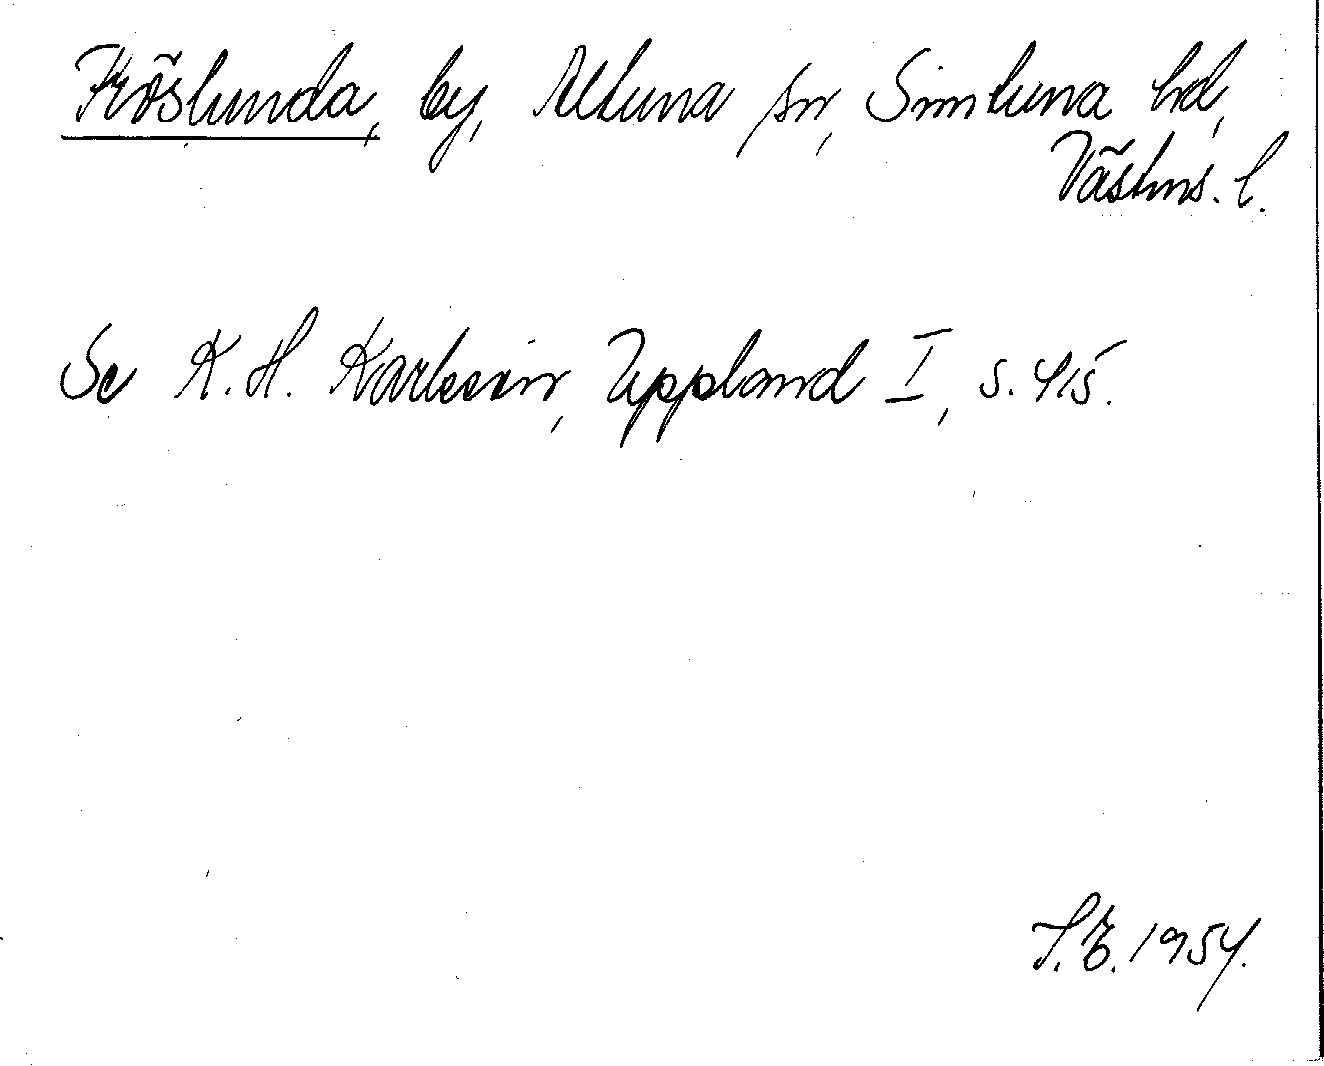 Fröslunda, by, Altuna sn, Simtuna hd,
Västms. l.
Se K. H. Karlsson, Uppland I, s. 415.
S.E. 1954.